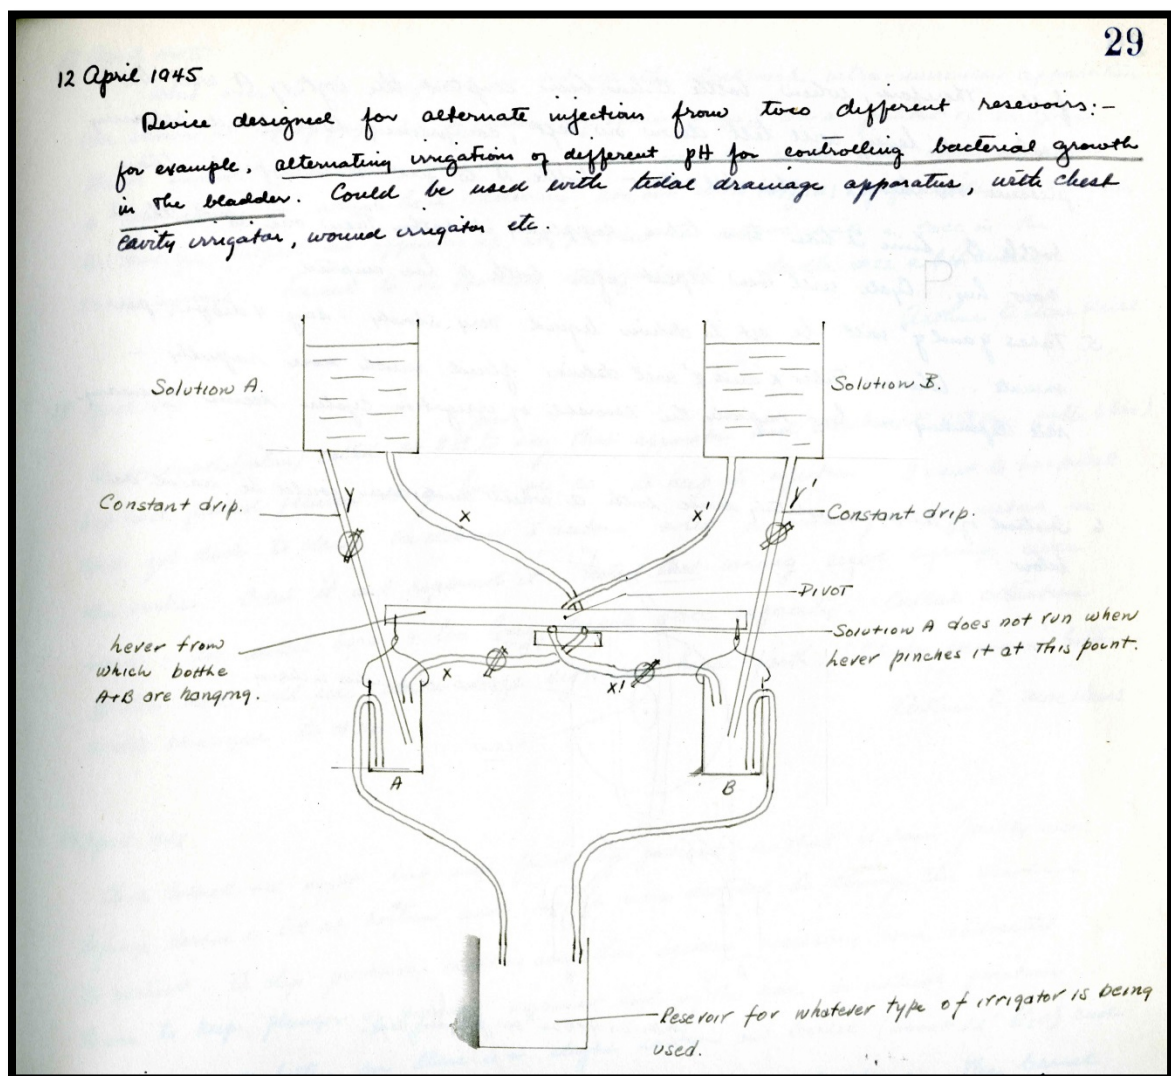 29
12 April 1945
Device designed for alternate injections from two different resevoirs:-
for example, alternating irrigations of different pH for controlling bacterial growth
in the bladder. Could be used with tidal drainage apparatus, with chest
cavity irrigator, wound irrigator etc.
Solution A.
Solution B.
Constant drip.
Y
X
X'
Y'
Constant drip.
PIVOT
Lever from
which bottle
A+B are hanging.
Solution A does not run when
lever pinches it at this point.
X
X'
A
B
Resevoir for whatever type of irrigator is being
used.